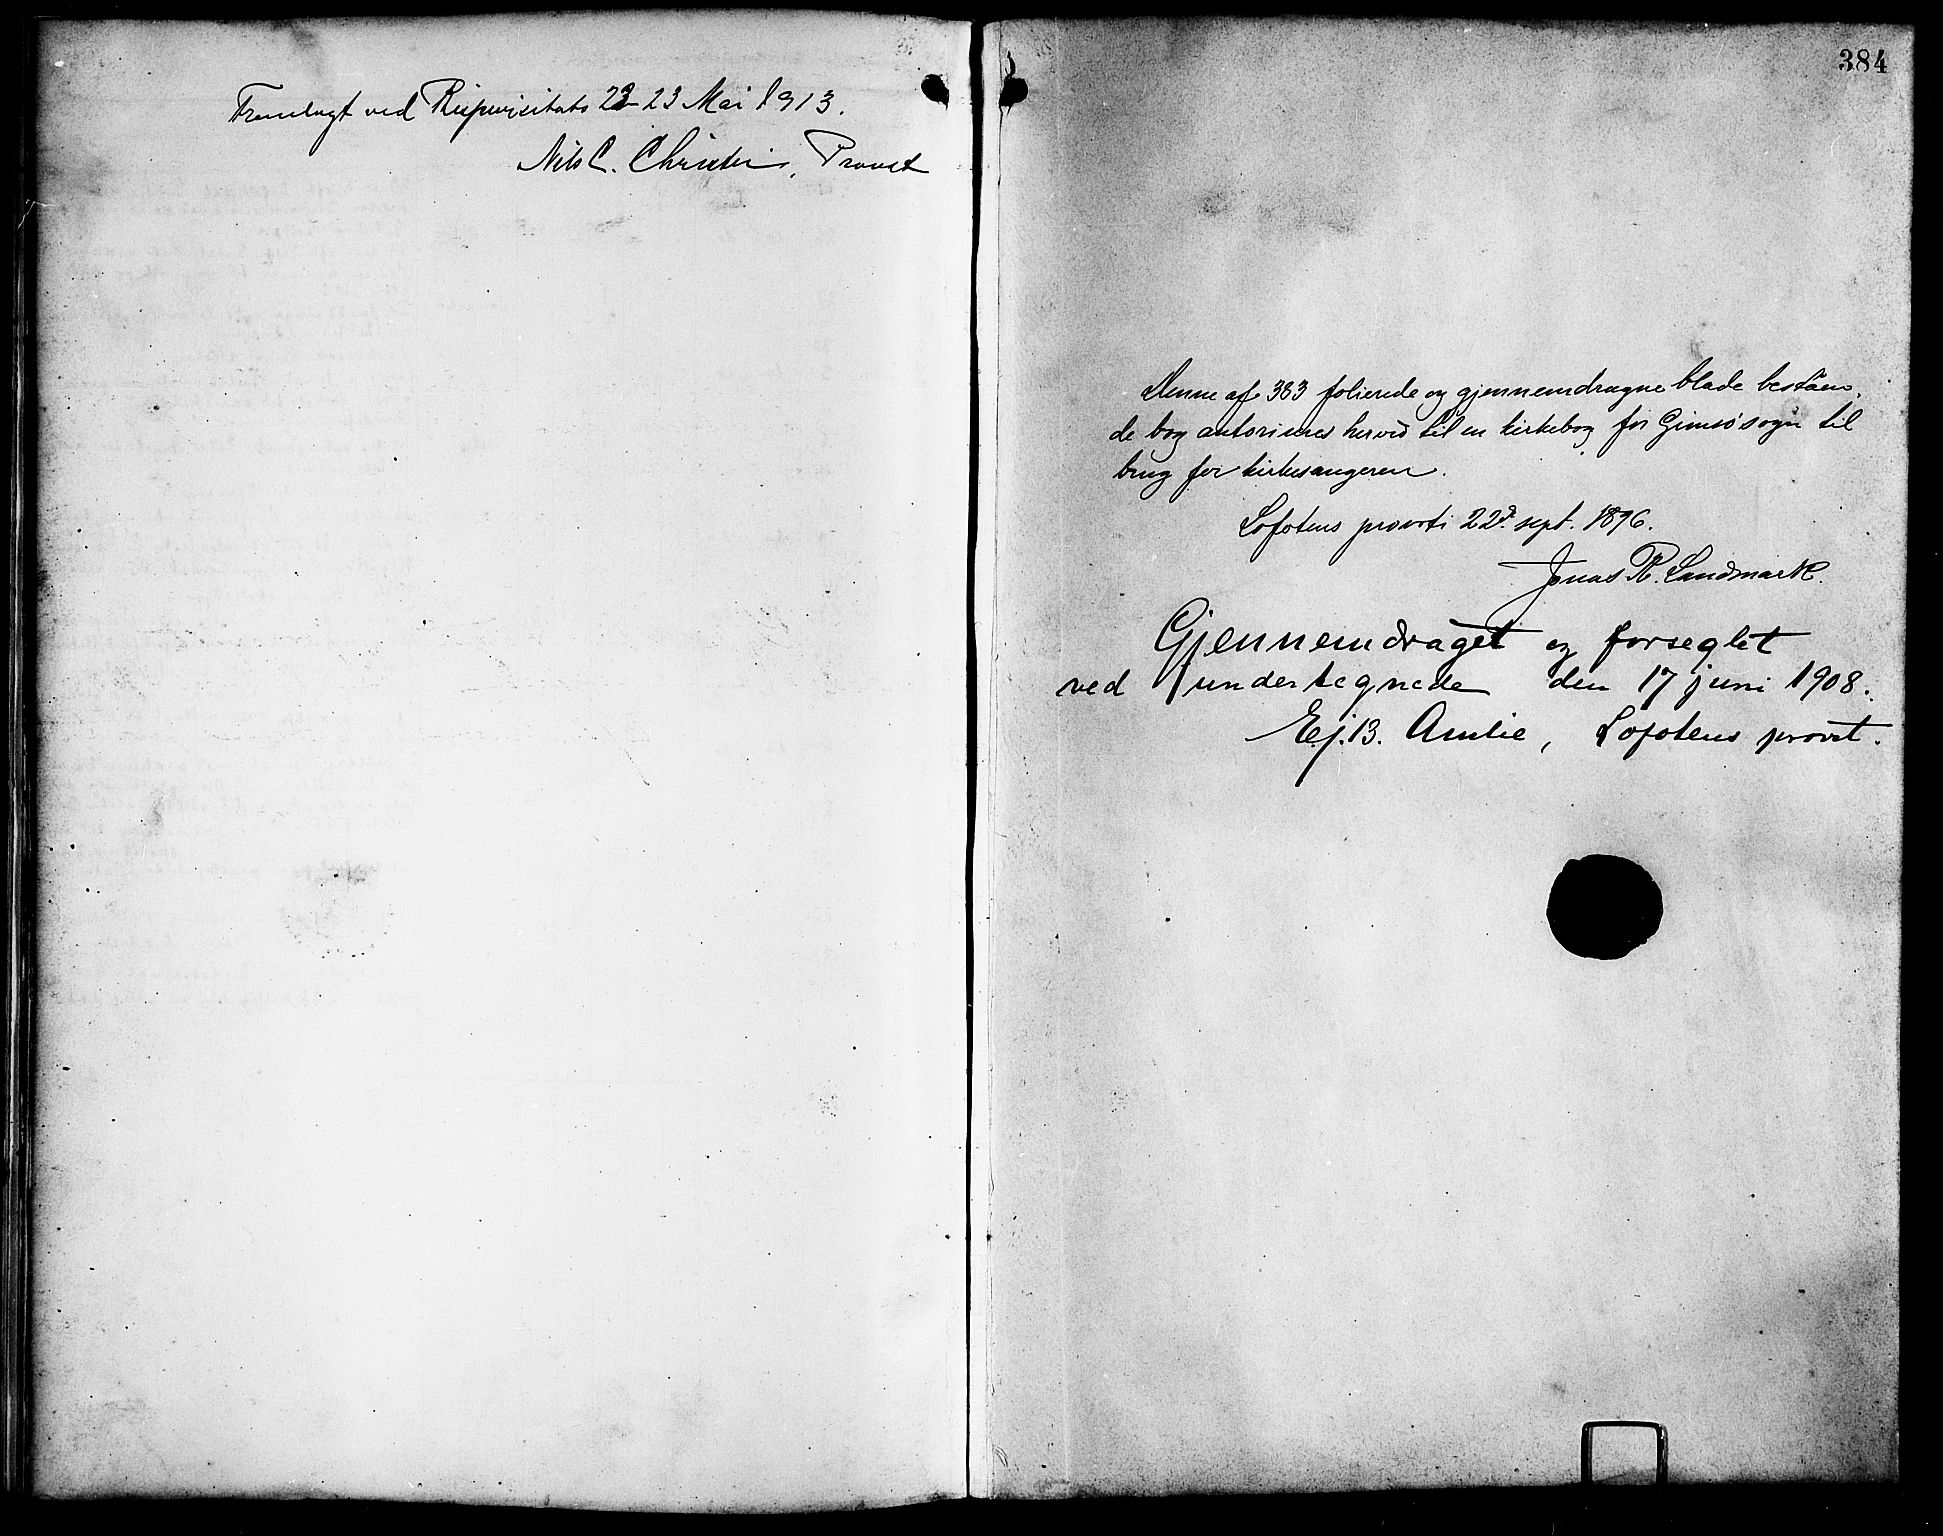 Fremlagt ved Bispevisitats 22-23 Mai 1913.
Nils C. Christie, Provst
384
Denne af 383 folierede og gjennemdragne blade beståen-
de bog autoriseres herved til en kirkebog for Gimsø sogn til
brug for kirkesangeren.
Lofotens provsti 22d. sept. 1896.
Jonas R. Landmark.
Gjennemdraget og forseglet
ved undertegnede den 17 juni 1908.
Lofotens provst.